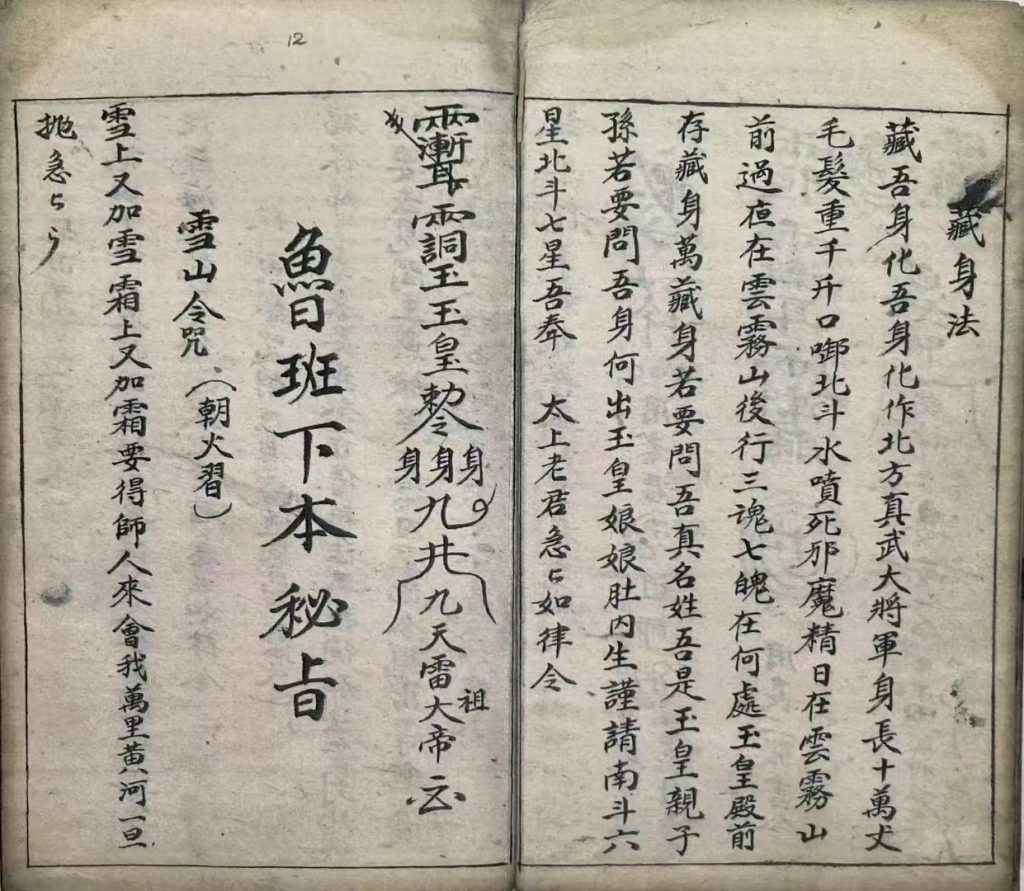 12
藏身法
藏吾身化吾身化作北方真武大將軍身長十萬丈
毛髮重千斤口啣北斗水噴死邪魔精日在雲霧山
前過夜在雲霧山後行三魂七魄在何處玉皇殿前
存藏身萬藏身若要問吾真名姓吾是玉皇親子
孫若要問吾身何出玉皇娘娘肚内生謹請南斗六
星北斗七星吾奉 太上老君急々如律令
玉玉皇勅令身身身九井九天雷祖大帝
魯班下本秘旨
雪山令咒、(朝火習)
雪上又加雪霜上又加霜要得師人來會我萬里黃河一旦
拋急々